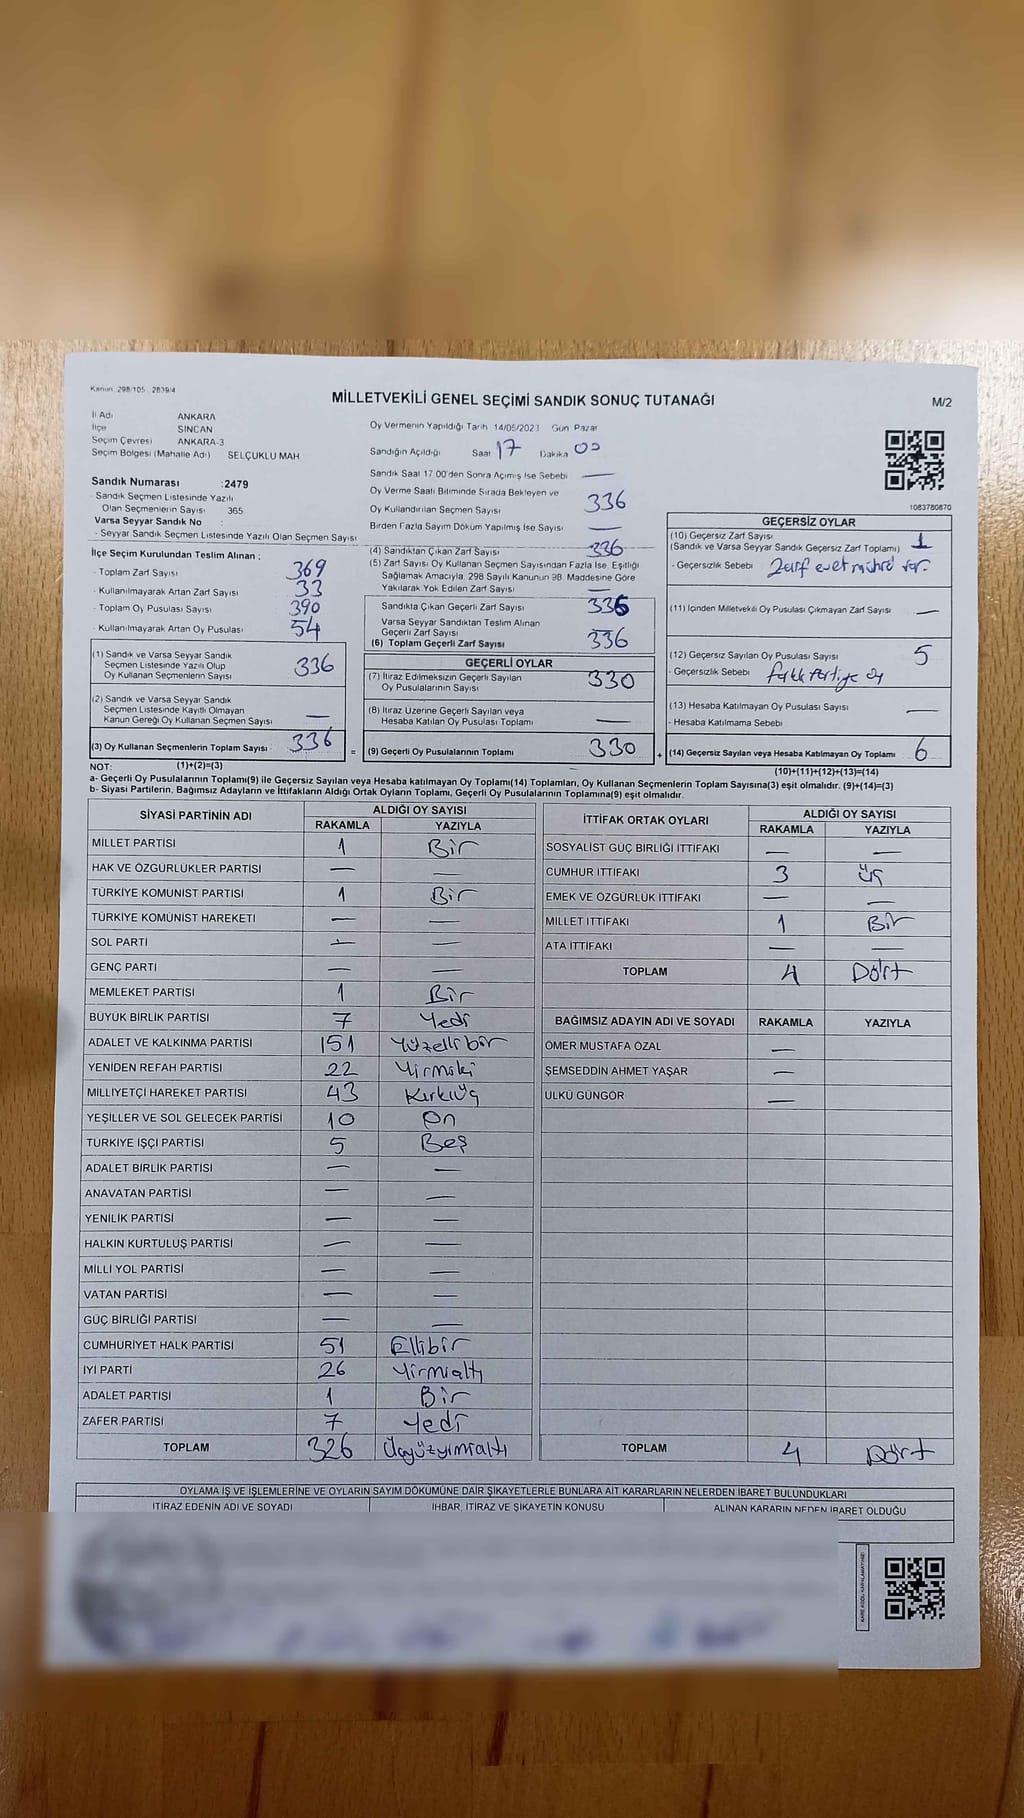 Kanun: 298/105 , 2839/4
MİLLETVEKİLİ GENEL SEÇİMİ SANDIK SONUÇ TUTANAĞI
M/2
İl Adı ANKARA
İlçe SİNCAN
Seçim Çevresi ANKARA-3
Seçim Bölgesi (Mahalle Adı) SELÇUKLU MAH
Sandık Numarası :2479
- Sandık Seçmen Listesinde Yazılı
Olan Seçmenlerin Sayısı 365
Varsa Seyyar Sandık No :
- Seyyar Sandık Seçmen Listesinde Yazılı Olan Seçmen Sayısı
İlçe Seçim Kurulundan Teslim Alınan :
- Toplam Zarf Sayısı 369
- Kullanılmayarak Artan Zarf Sayısı 33
- Toplam Oy Pusulası Sayısı 390
- Kullanılmayarak Artan Oy Pusulası 54
(1) Sandık ve Varsa Seyyar Sandık
Seçmen Listesinde Yazılı Olup
Oy Kullanan Seçmenlerin Sayısı 336
(2) Sandık ve Varsa Seyyar Sandık
Seçmen Listesinde Kayıtlı Olmayan
Kanun Gereği Oy Kullanan Seçmen Sayısı —
(3) Oy Kullanan Seçmenlerin Toplam Sayısı 336
Oy Vermenin Yapıldığı Tarih 14/05/2023 Gün Pazar
Sandığın Açıldığı Saat 17 Dakika 00
Sandık Saat 17.00'den Sonra Açımış İse Sebebi —
Oy Verme Saati Bitiminde Sırada Bekleyen ve
Oy Kullandırılan Seçmen Sayısı 336
Birden Fazla Sayım Döküm Yapılmış İse Sayısı —
(4) Sandıktan Çıkan Zarf Sayısı 336
(5) Zarf Sayısı Oy Kullanan Seçmen Sayısından Fazla İse, Eşitliği
Sağlamak Amacıyla, 298 Sayılı Kanunun 98. Maddesine Göre
Yakılarak Yok Edilen Zarf Sayısı —
Sandıkta Çıkan Geçerli Zarf Sayısı 336
Varsa Seyyar Sandıktan Teslim Alınan
Geçerli Zarf Sayısı —
(6) Toplam Geçerli Zarf Sayısı 336
GEÇERLİ OYLAR
(7) İtiraz Edilmeksizin Geçerli Sayılan
Oy Pusulalarının Sayısı 330
(8) İtiraz Üzerine Geçerli Sayılan veya
Hesaba Katılan Oy Pusulası Toplamı —
= (9) Geçerli Oy Pusulalarının Toplamı 330
1083780870
GEÇERSİZ OYLAR
(10) Geçersiz Zarf Sayısı
(Sandık ve Varsa Seyyar Sandık Geçersiz Zarf Toplamı) 1
- Geçersizlik Sebebi Zarf evet mührü var.
(11) İçinden Milletvekili Oy Pusulası Çıkmayan Zarf Sayısı —
(12) Geçersiz Sayılan Oy Pusulası Sayısı 5
- Geçersizlik Sebebi farklı Partiye oy
(13) Hesaba Katılmayan Oy Pusulası Sayısı —
- Hesaba Katılmama Sebebi
+ (14) Geçersiz Sayılan veya Hesaba Katılmayan Oy Toplamı 6
NOT: (1)+(2)=(3) (10)+(11)+(12)+(13)=(14)
a- Geçerli Oy Pusulalarının Toplamı(9) ile Geçersiz Sayılan veya Hesaba katılmayan Oy Toplamı(14) Toplamları, Oy Kullanan Seçmenlerin Toplam Sayısına(3) eşit olmalıdır. (9)+(14)=(3)
b- Siyasi Partilerin, Bağımsız Adayların ve İttifakların Aldığı Ortak Oyların Toplamı, Geçerli Oy Pusulalarının Toplamına(9) eşit olmalıdır.
SİYASİ PARTİNİN ADI ALDIĞI OY SAYISI
RAKAMLA YAZIYLA
MİLLET PARTİSİ 1 Bir
HAK VE ÖZGÜRLÜKLER PARTİSİ — —
TÜRKİYE KOMÜNİST PARTİSİ 1 Bir
TÜRKİYE KOMÜNİST HAREKETİ — —
SOL PARTİ — —
GENÇ PARTİ — —
MEMLEKET PARTİSİ 1 Bir
BÜYÜK BİRLİK PARTİSİ 7 Yedi
ADALET VE KALKINMA PARTİSİ 151 Yüzellibir
YENİDEN REFAH PARTİSİ 22 Yirmiiki
MİLLİYETÇİ HAREKET PARTİSİ 43 Kırküç
YEŞİLLER VE SOL GELECEK PARTİSİ 10 On
TÜRKİYE İŞÇİ PARTİSİ 5 Beş
ADALET BİRLİK PARTİSİ — —
ANAVATAN PARTİSİ — —
YENİLİK PARTİSİ — —
HALKIN KURTULUŞ PARTİSİ — —
MİLLİ YOL PARTİSİ — —
VATAN PARTİSİ — —
GÜÇ BİRLİĞİ PARTİSİ — —
CUMHURİYET HALK PARTİSİ 51 Ellibir
İYİ PARTİ 26 Yirmialtı
ADALET PARTİSİ 1 Bir
ZAFER PARTİSİ 7 Yedi
TOPLAM 326 Üçyüzyirmialtı
İTTİFAK ORTAK OYLARI ALDIĞI OY SAYISI
RAKAMLA YAZIYLA
SOSYALİST GÜÇ BİRLİĞİ İTTİFAKI — —
CUMHUR İTTİFAKI 3 üç
EMEK VE ÖZGÜRLÜK İTTİFAKI — —
MİLLET İTTİFAKI 1 Bir
ATA İTTİFAKI — —
TOPLAM 4 Dört
BAĞIMSIZ ADAYIN ADI VE SOYADI RAKAMLA YAZIYLA
ÖMER MUSTAFA ÖZAL —
ŞEMSEDDİN AHMET YAŞAR —
ÜLKÜ GÜNGÖR —
TOPLAM 4 Dört
OYLAMA İŞ VE İŞLEMLERİNE VE OYLARIN SAYIM DÖKÜMÜNE DAİR ŞİKAYETLERLE BUNLARA AİT KARARLARIN NELERDEN İBARET BULUNDUKLARI
İTİRAZ EDENİN ADI VE SOYADI İHBAR, İTİRAZ VE ŞİKAYETİN KONUSU ALINAN KARARIN NEDEN İBARET OLDUĞU